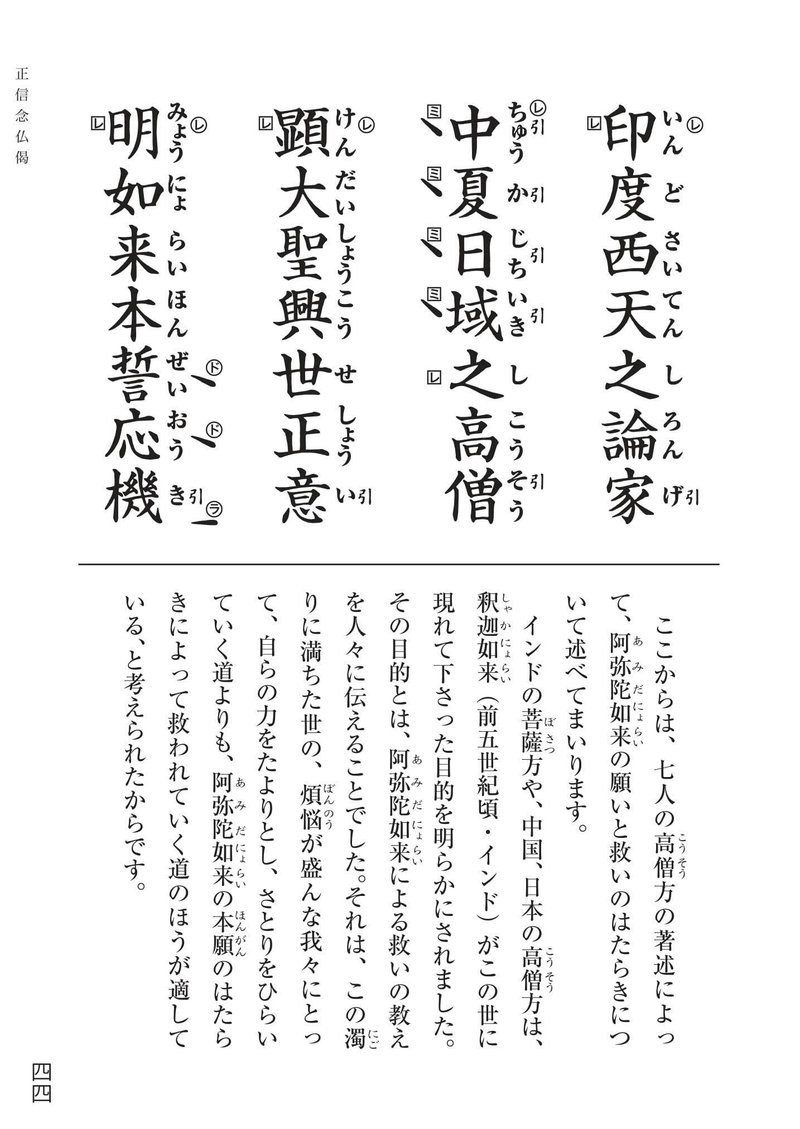 正信念仏偈
印度西天之論家
いんどさいてんしろんげ
中夏日域之高僧
ちゅうかじちいきしこうそう
顕大聖興世正意
けんだいしょうこうせしょうい
明如来本誓応機
みょうにょらいほんぜいおうき
ここからは、七人の高僧方の著述によっ
て、阿弥陀如来の願いと救いのはたらきにつ
いて述べてまいります。
インドの菩薩方や、中国、日本の高僧方は、
釈迦如来（前五世紀頃・インド）がこの世に
現れて下さった目的を明らかにされました。
その目的とは、阿弥陀如来による救いの教え
を人々に伝えることでした。それは、この濁
りに満ちた世の、煩悩が盛んな我々にとっ
て、自らの力をたよりとし、さとりをひらい
ていく道よりも、阿弥陀如来の本願のはたら
きによって救われていく道のほうが適して
いる、と考えられたからです。
四四